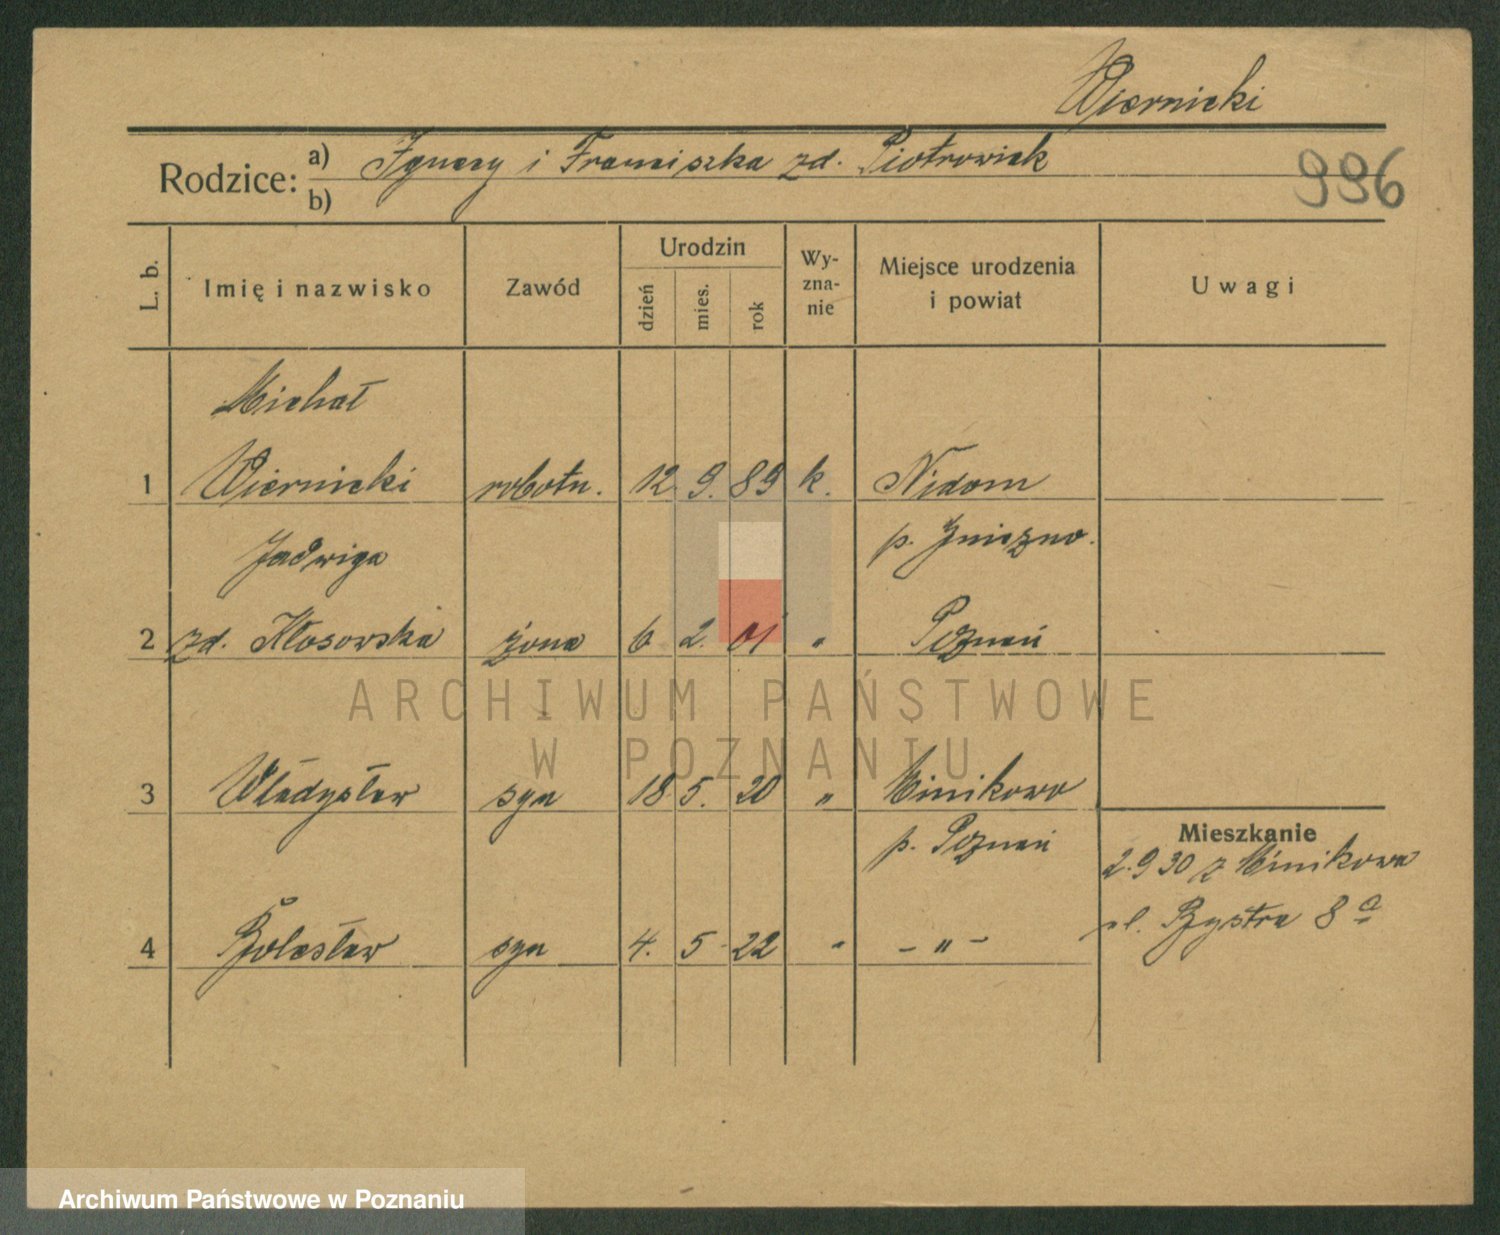 Wiernicki
Rodzice: a) Ignacy i Franciszka zd. Piotrowiak
b)
996
L. b.
Imię i nazwisko
Zawód
Urodzin
dzień
mies.
rok
Wy-
zna-
nie
Miejsce urodzenia
i powiat
Uwagi
Michał
1 Wiernicki robotn. 12. 9. 89 k. Nidom
p. Gniezno.
Jadwiga
2 zd. Kłosowska żona 6 2. 01 „ Poznań
ARCHIWUM PAŃSTWOWE
W POZNANIU
3 Władysław syn 18 5. 20 „ Minikowo
p. Poznań
Mieszkanie
2.9 30 z Minikowa
ul. Bystra 8 a
4 Bolesław syn 4. 5 22 „ – „ –
Archiwum Państwowe w Poznaniu